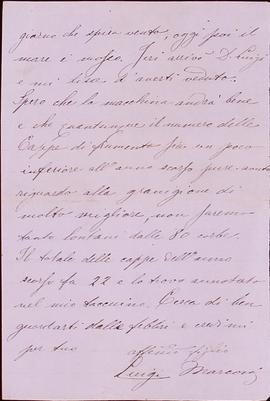 giorno che spira vento, oggi poi il
mare è mosso. Ieri arrivò D. Luigi
e mi disse d'averti veduto.
Spero che la macchina andrà bene
e che quantunque il numero delle
Cappe di frumento sia un poco
inferiore all'anno scorso pure avuto
riguardo alla granigione di
molto migliore, non saremo
tanto lontani dalle 80 corbe.
Il totale delle cappe dell'anno
scorso fu 22 e lo trovo annotato
nel mio taccuino. Cerca di ben
guardarti dalle febbri e credimi
per tuo
affmo figlio
Luigi Marconi